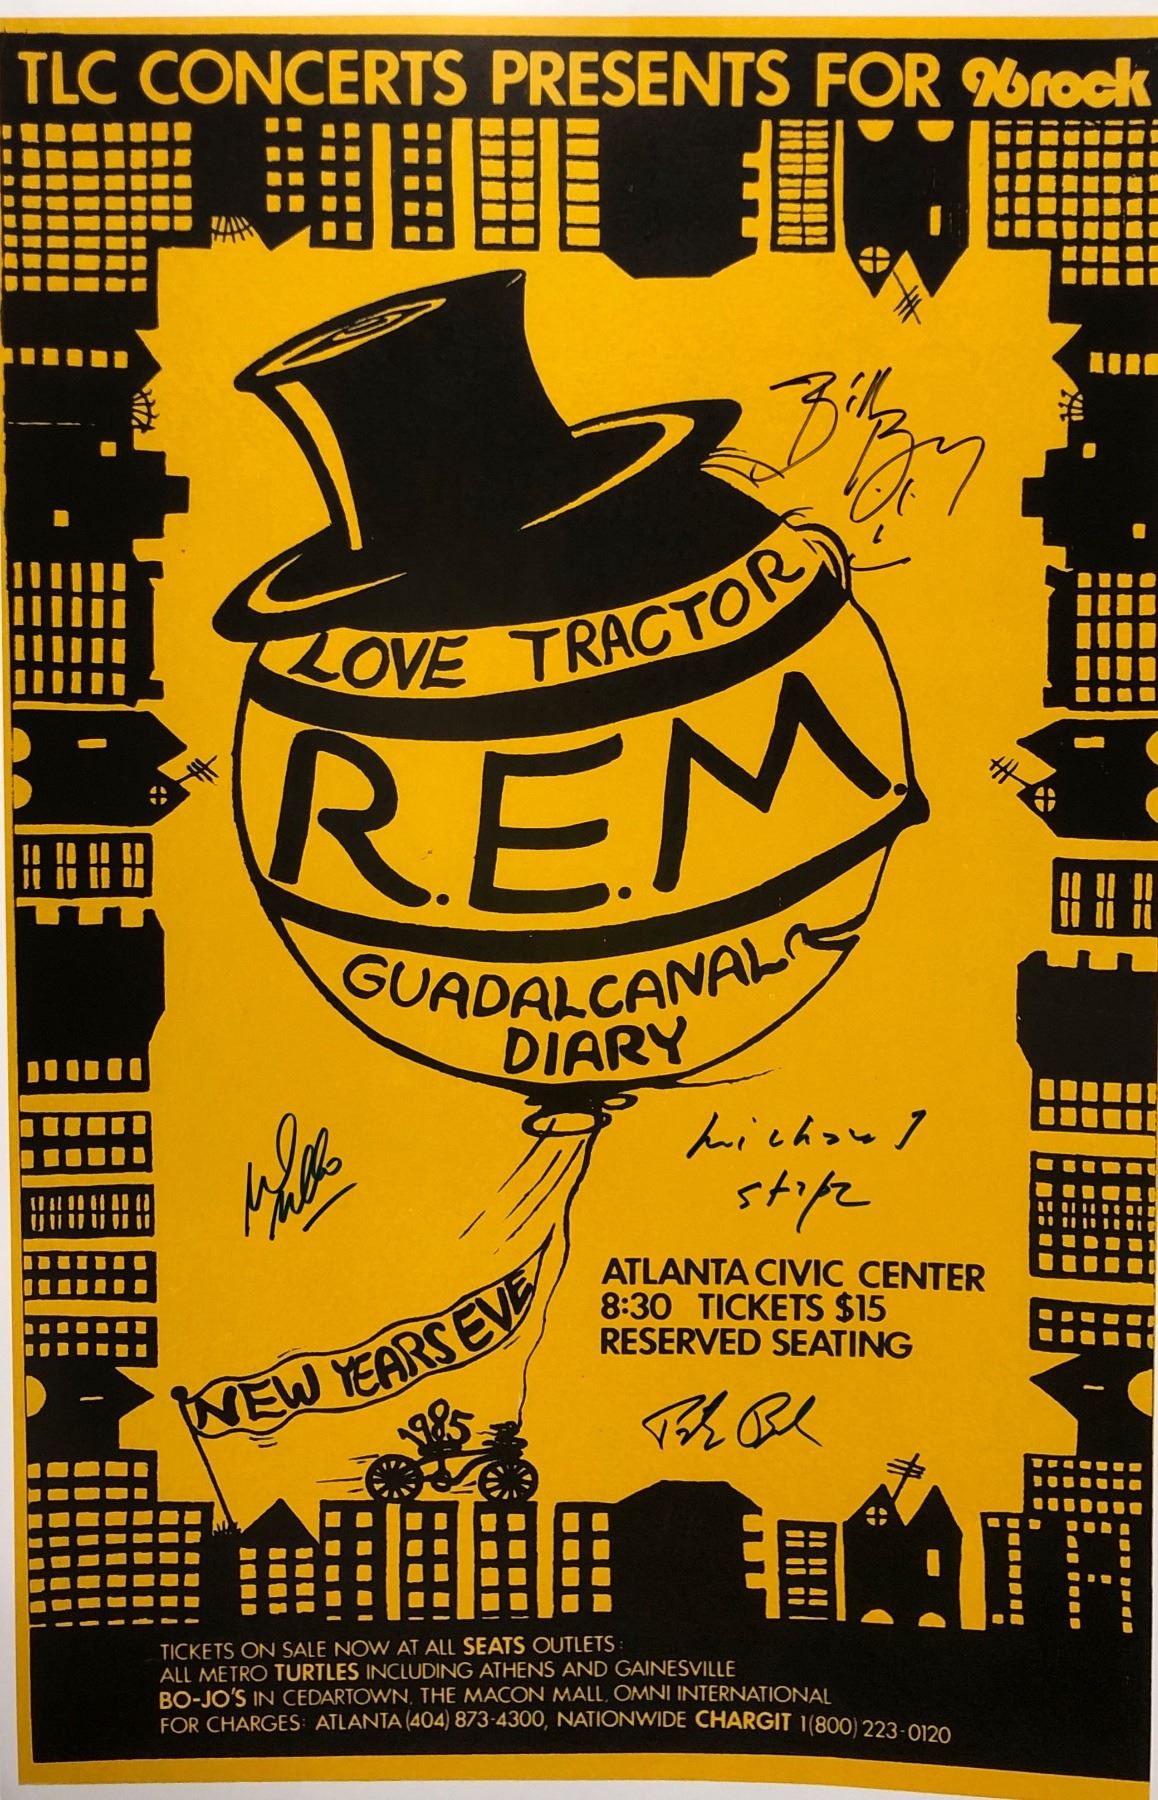 TLC CONCERTS PRESENTS FOR 96rock
Bill Berry
LOVE TRACTOR
R.E.M.
GUADALCANAL
DIARY
michael
stipe
ATLANTA CIVIC CENTER
8:30 TICKETS $15
RESERVED SEATING
NEW YEARS EVE
1985
TICKETS ON SALE NOW AT ALL SEATS OUTLETS:
ALL METRO TURTLES INCLUDING ATHENS AND GAINESVILLE
BO-JO'S IN CEDARTOWN, THE MACON MALL, OMNI INTERNATIONAL
FOR CHARGES: ATLANTA (404) 873-4300, NATIONWIDE CHARGIT 1(800) 223-0120